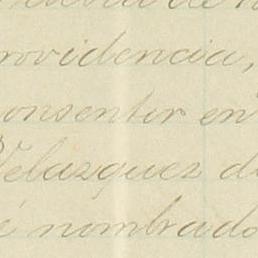 de
rovidencia,
onsentir en
Velazquez d
é nombrado